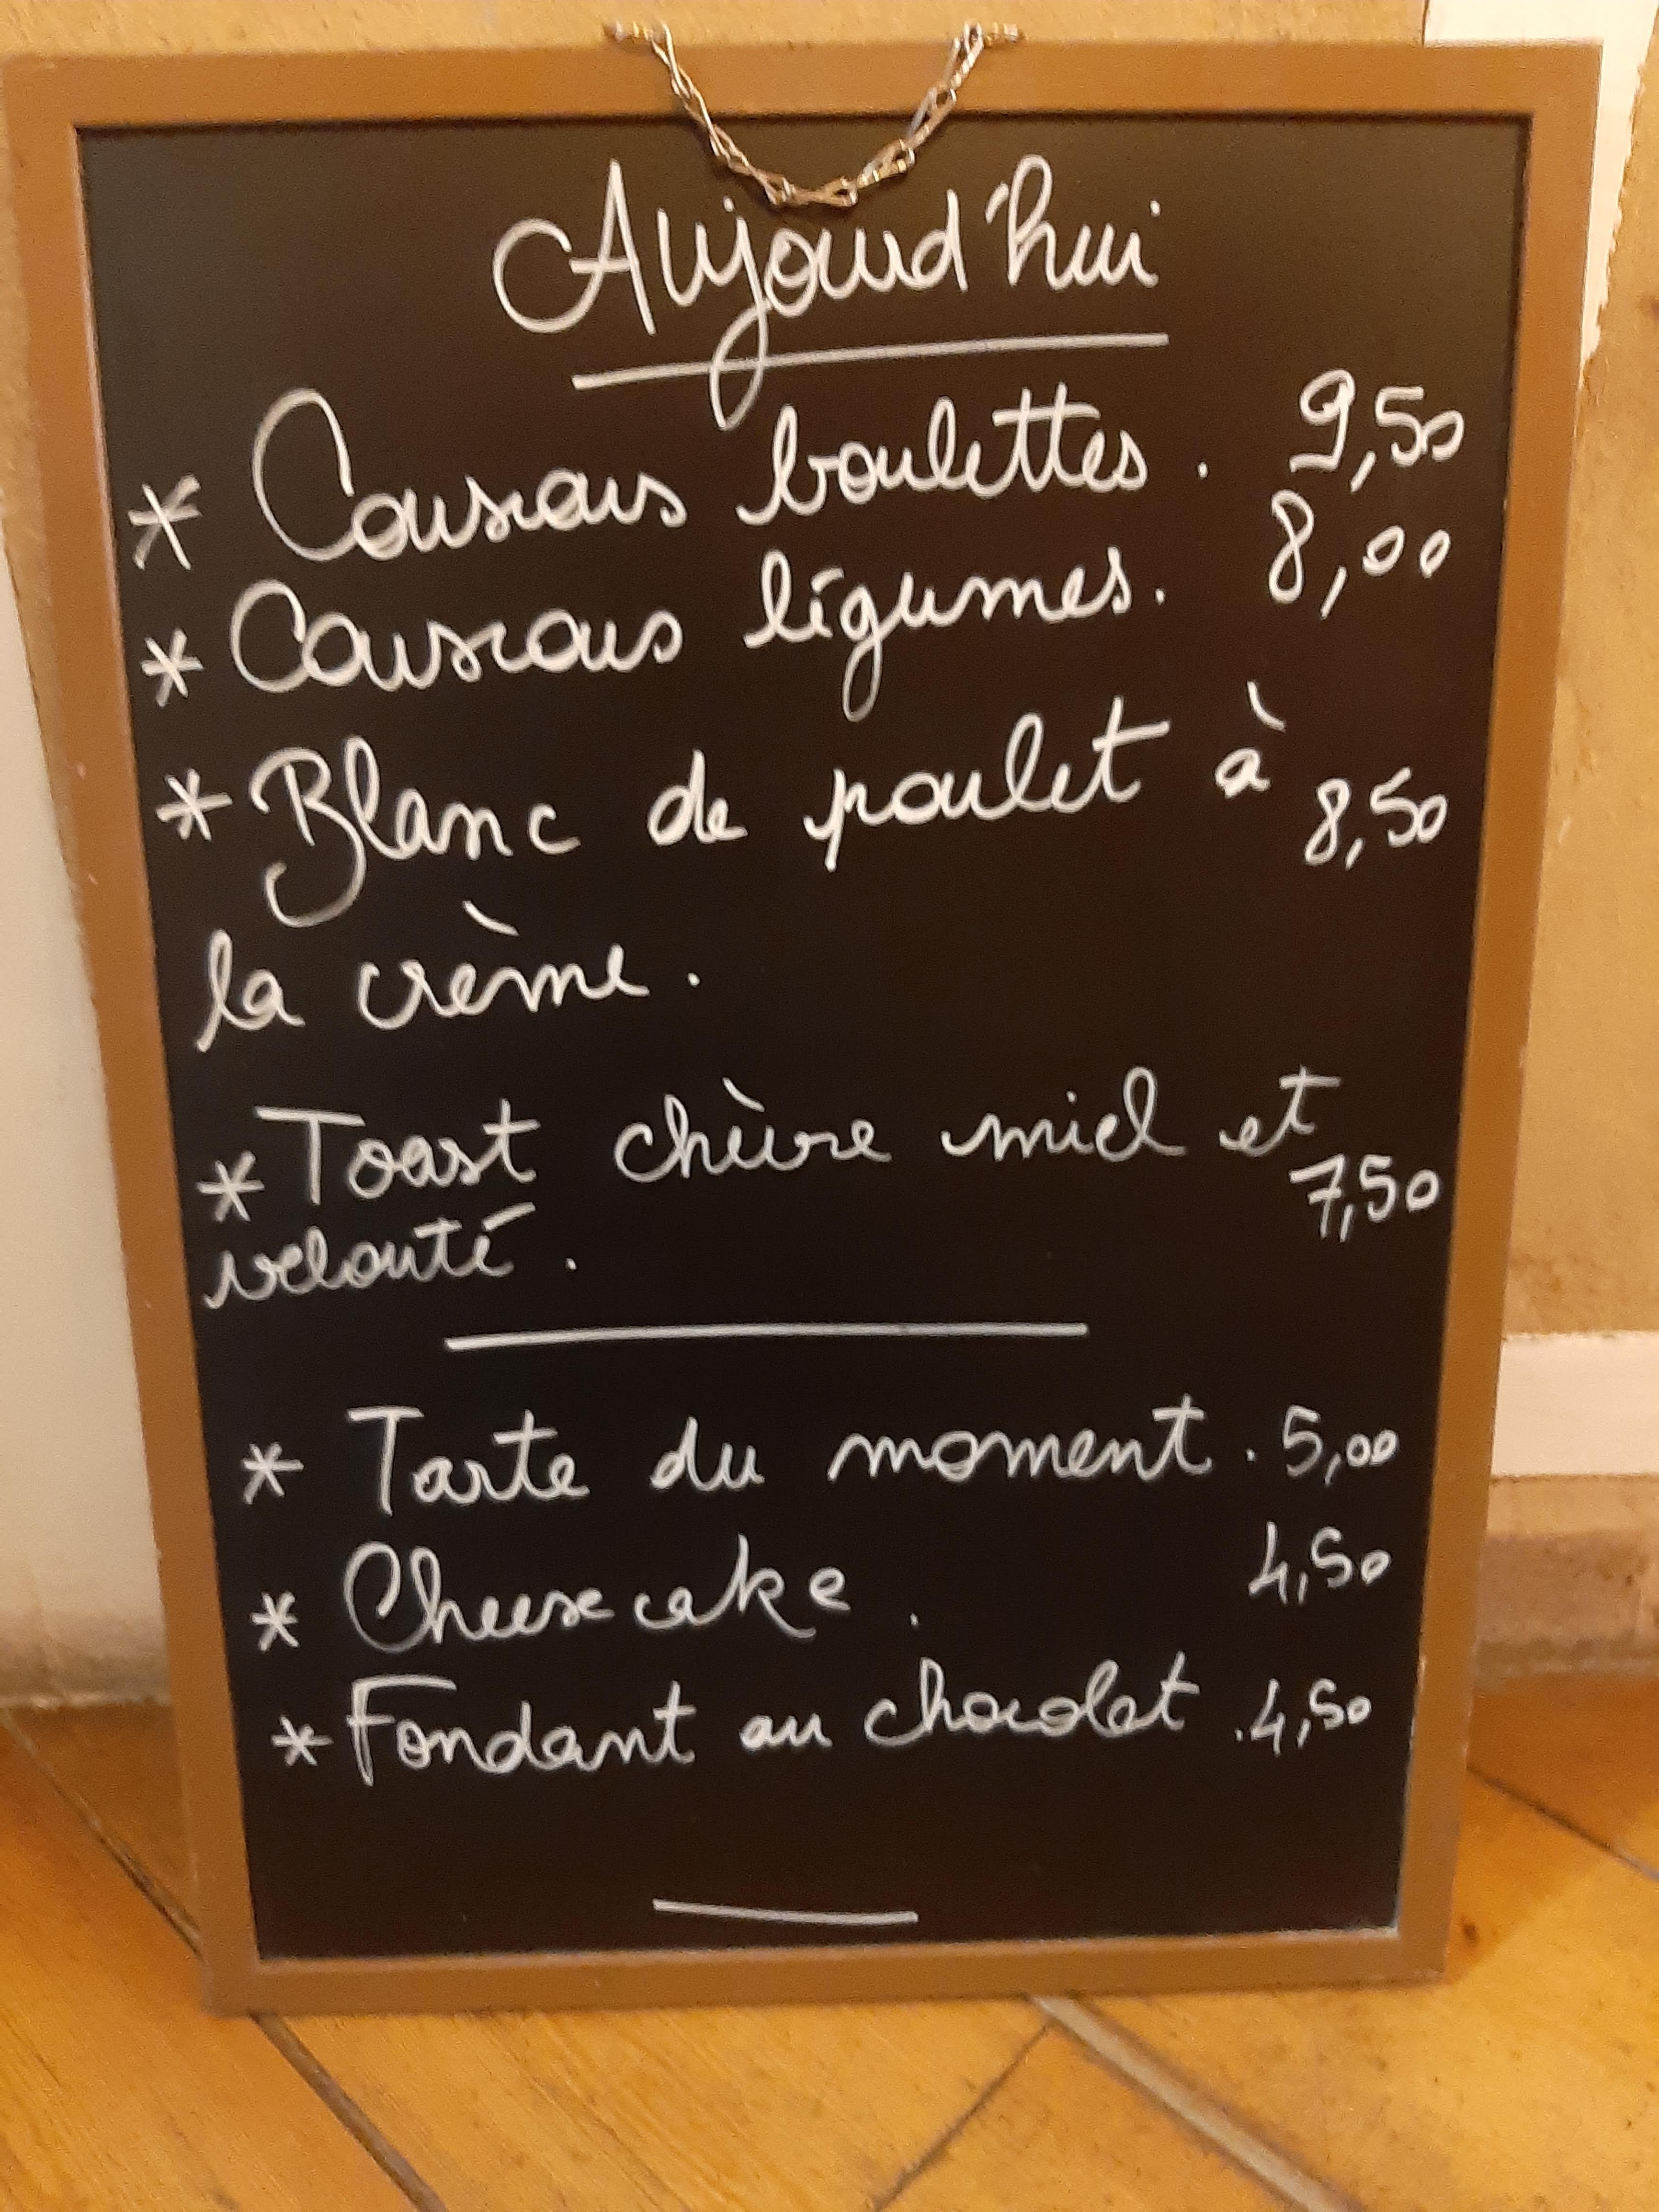 Aujourd'hui
* Couscous boulettes. 9,50
* Couscous légumes. 8,00
* Blanc de poulet à 8,50
la crème.
* Toast chèvre miel et
velouté. 7,50
* Tarte du moment. 5,00
* Cheesecake. 4,50
* Fondant au chocolat. 4,50